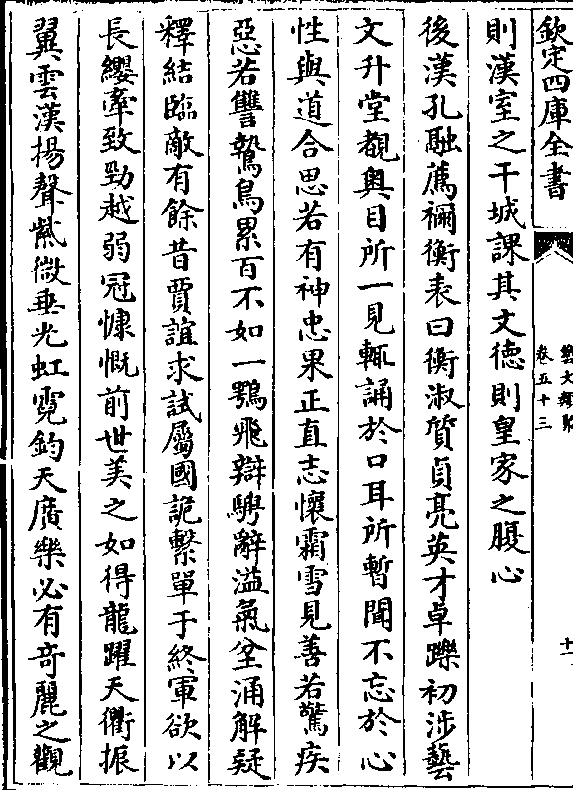 欽定四庫全書
藝文類聚
卷五十三
十一
則漢室之干城課其文德則皇家之腹心
後漢孔融薦禰衡表曰衡淑質貞亮英才卓躒初涉藝
文升堂覩奥目所一見輒誦於口耳所暫聞不忘於心
性與道合思若有神忠果正直志懷霜雪見善若驚疾
惡若讐鷙鳥累百不如一鶚飛辯騁辭溢氣坌涌解疑
釋結臨敵有餘昔賈誼求試屬國詭繫單于終軍欲以
長纓牽致勁越弱冠慷慨前世美之如得龍躍天衢振
翼雲漢揚聲紫微垂光虹霓鈞天廣樂必有竒麗之觀